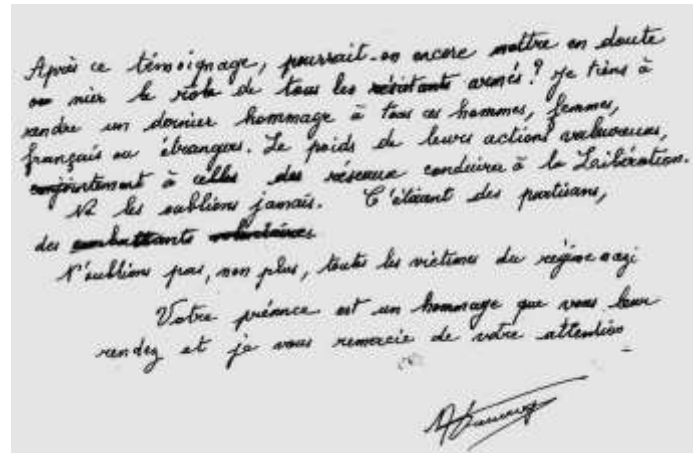 Après ce témoignage, pourrait-on encore mettre en doute
ou nier le rôle de tous les résistants armés? Je tiens à
rendre un dernier hommage à tous ces hommes, femmes,
français ou étrangers. Le poids de leurs actions valeureuses,
conjointement à celles des réseaux conduira à la Libération.
Ne les oublions jamais. C'étaient des partisans,
des combattants volontaires
N'oublions pas, non plus, toutes les victimes du régime nazi
Votre présence est un hommage que vous leur
rendez et je vous remercie de votre attention